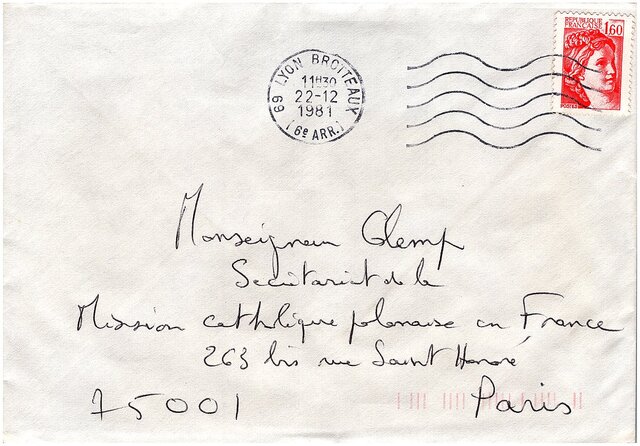 REPUBLIQUE
FRANÇAISE
1,60
POSTES
69 LYON BROTTEAUX
11H30
22-12
1981
(6e ARR.)
Monseigneur Glemp
Secrétariat de la
Mission catholique polonaise en France
263 bis rue Saint Honoré
75001 Paris